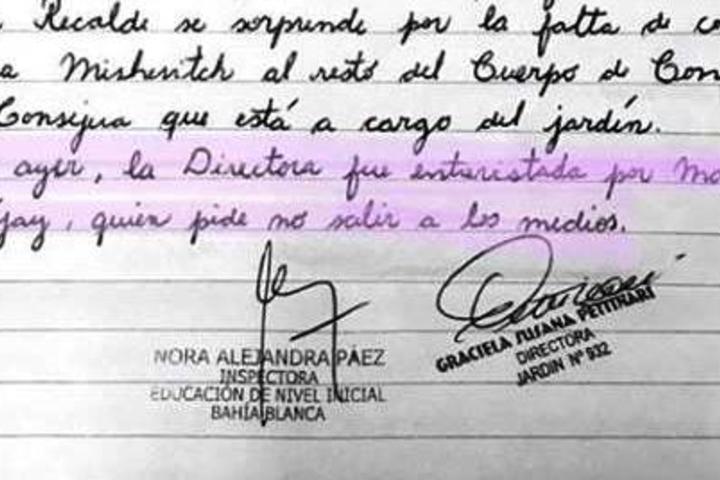 Recalde se sorprende por la falta de
a Mishevitch al resto del Cuerpo de Con
Consejera que está a cargo del jardín.
ayer, la Directora fue enturistada por Ma
jay, quien pide no salir a los medios.
NORA ALEJANDRA PÁEZ
INSPECTORA
EDUCACIÓN DE NIVEL INICIAL
BAHÍA BLANCA
GRACIELA SUSANA PETTINARI
DIRECTORA
JARDIN Nº 932